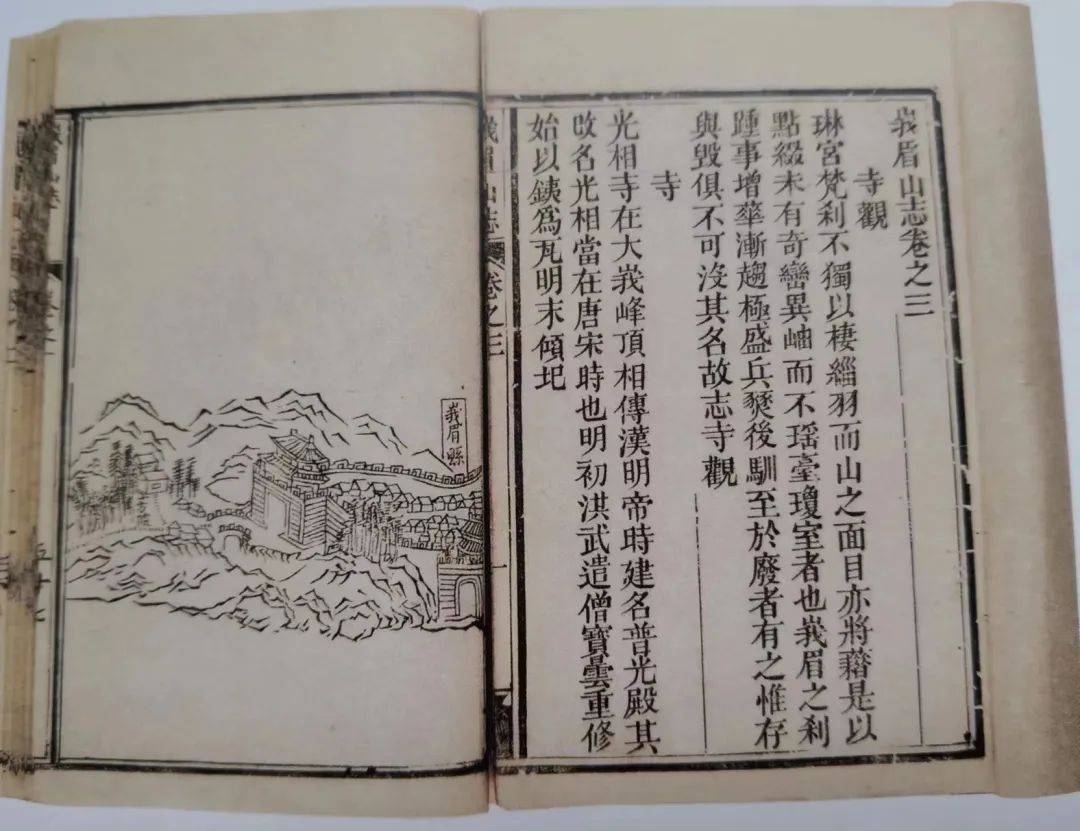 峩眉山志卷之三
寺觀
琳宮梵刹不獨以棲緇羽而山之面目亦將藉是以
點綴未有奇巒異岫而不瑶臺瓊室者也峩眉之刹
踵事增華漸趨極盛兵燹後馴至於廢者有之惟存
與毀俱不可沒其名故志寺觀
寺
光相寺在大峩峰頂相傳漢明帝時建名普光殿其
改名光相當在唐宋時也明初洪武遣僧寶曇重修
始以銕爲瓦明末傾圯
峩眉山志
卷之三
峩眉縣